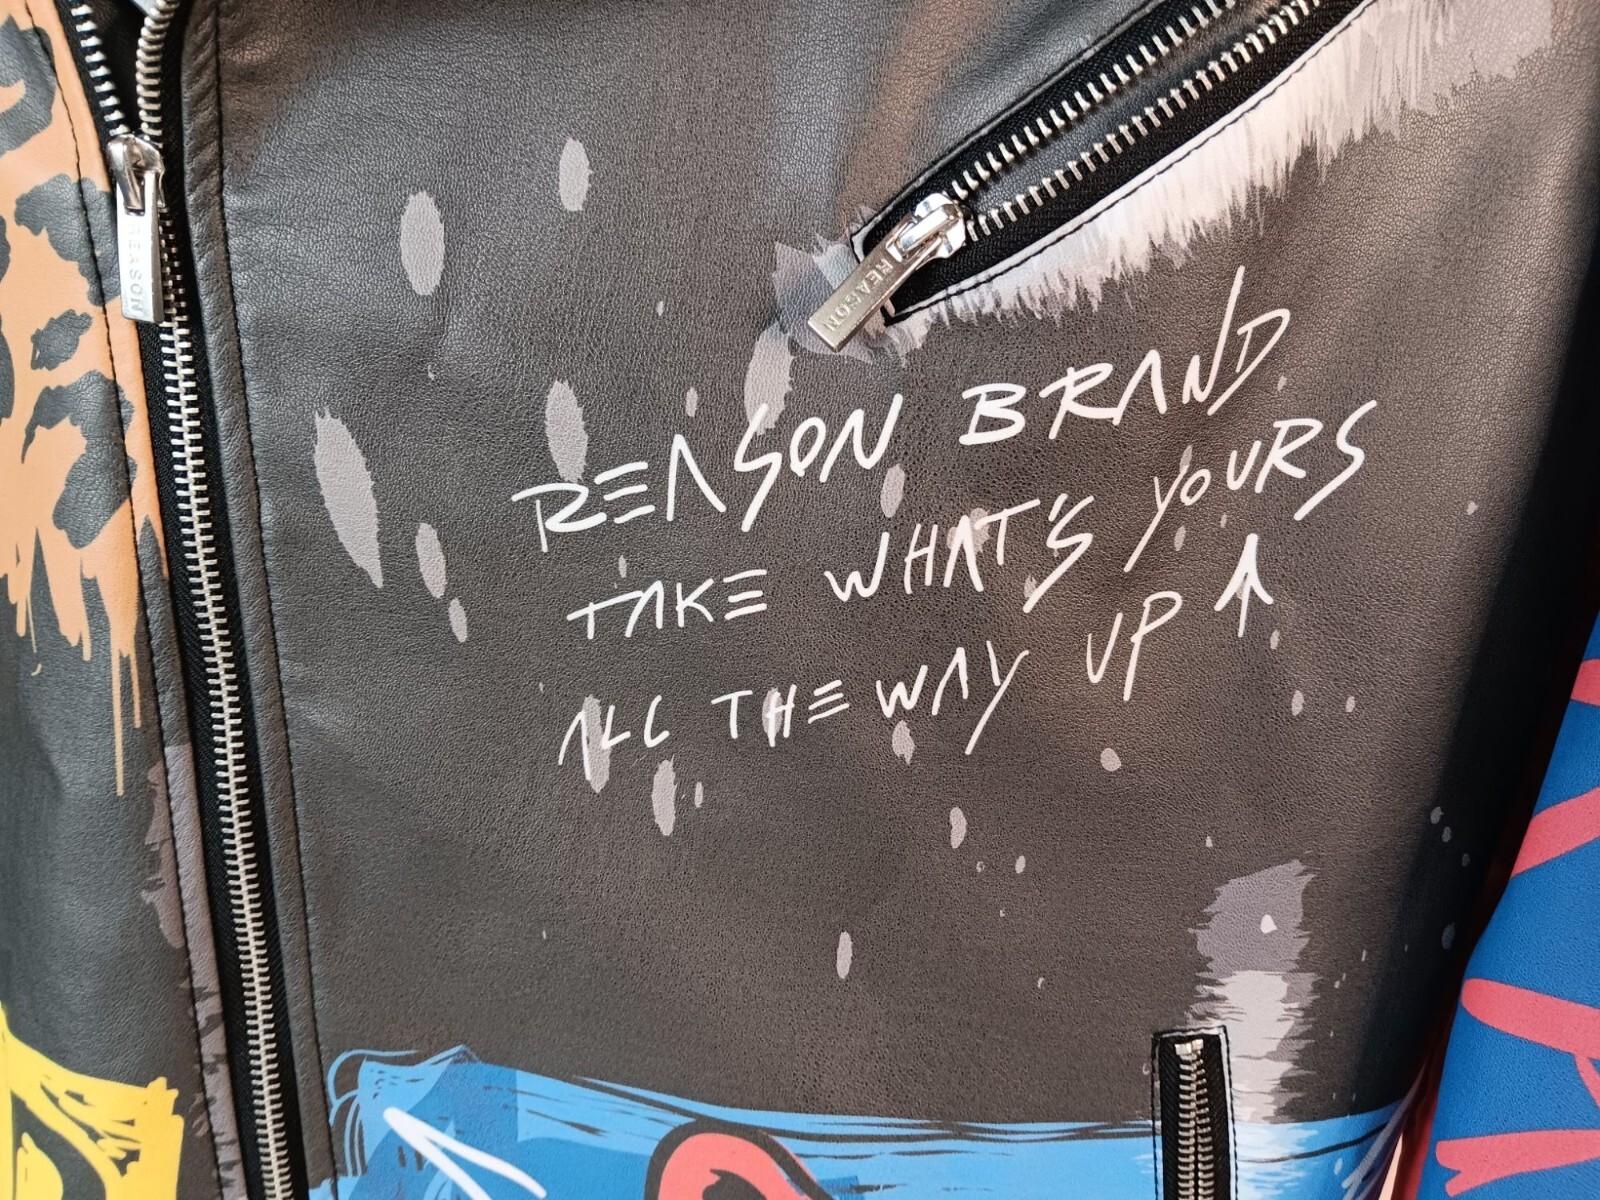 REASON
REASON
REASON BRAND
TAKE WHAT'S YOURS
ALL THE WAY UP ↑